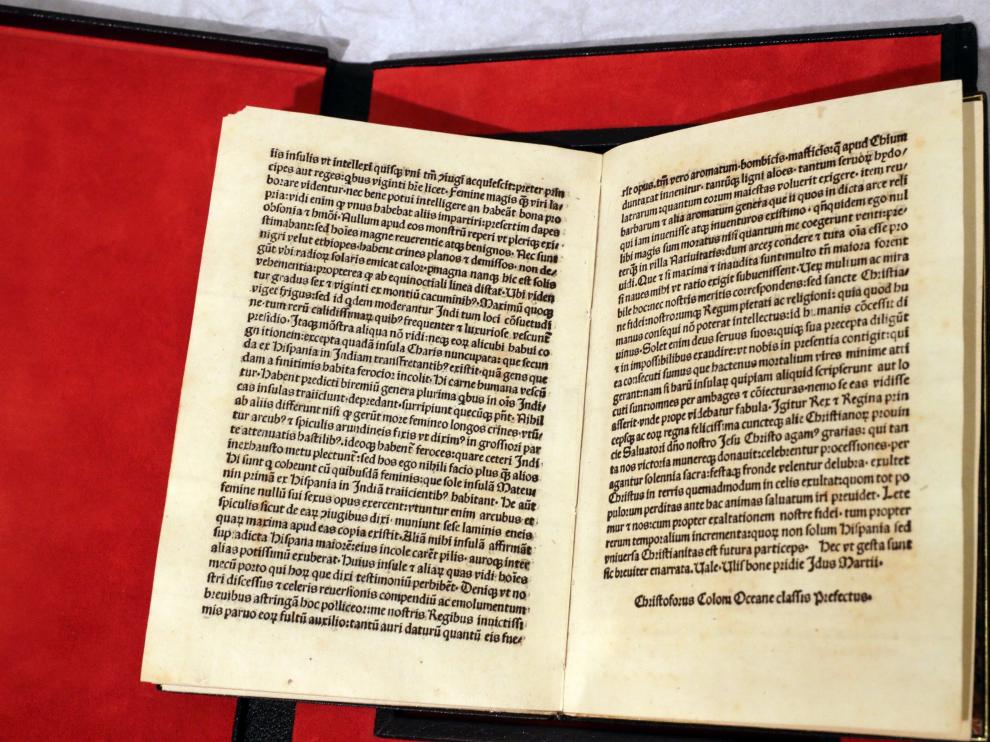 iis insulis vt intellexi quisq̃ vni tm̃ ꝯiugi acquiescit: preter prin
cipes aut reges: qbus viginti hr̃e licet. Femine magis q̃ȝ viri la/
borare videntur. nec bene potui intelligere an habeãt bona pro
pria: vidi enim ꝙ vnus habebat aliis impartiri: presertim dapes
obsonia ⁊ hmõi. Nullum apud eos monstrũ reperi vt pleriqȝ exi-
stimabant: sed hoĩes magne reuerentie atqȝ benignos. Nec sunt
nigri velut ethiopes. habent crines planos ⁊ demissos. non de/
gũt vbi radioꝝ solaris emicat calor. ꝑmagna nanqȝ hic est solis
vehementia: propterea ꝙ ab equinoctiali linea distat. Vbi viden
tur gradus sex ⁊ viginti ex montiũ cacuminibꝰ. Maximũ quoqȝ
viget frigus: sed id qdem moderantur Indi tum loci cõsuetudi
ne. tum rerũ calidissimaꝝ quibꝰ frequenter ⁊ luxuriose vescunt̃
presidio. Itaqȝ mõstra aliqua nõ vidi: neqȝ eoꝝ alicubi habui co
gnitionem: excepta quadã insula Charis nuncupata: que secun
da ex Hispania in Indiam transfretantibꝰ existit. quã gens que
dam a finitimis habita ferocior incolit. Hi carne humana vescũ
tur. Habent predicti biremiũ genera plurima qbus in oĩs Indi/
cas insulas traiiciunt. depredant. surripiunt quecũqȝ pñt. Nihil
ab aliis differunt nisi ꝙ gerũt more femineo longos crines. vtũ/
tur arcubꝰ ⁊ spiculis arundineis fixis vt dixim̃ in grossiori par
te attenuatis hastilibꝰ. ideoqȝ habent̃ feroces: quare ceteri Indi
inexhausto metu plectunt̃: sed hos ego nihili facio plus q̃ȝ alios
Hi sunt q coheunt cũ quibusdã feminis: que sole insulã Mateu
nin primã ex Hispania in Indiã traiicientibꝰ habitant. He aũt
femine nullũ sui sexus opus exercent: vtuntur enim arcubus et
spiculis sicut de eaꝝ ꝯiugibus dixi. muniunt sese laminis eneis
quaꝝ maxima apud eas copia existit. Aliã mihi insulã affirmãt
supradicta Hispana maiorẽ: eius incole carẽt pilis. auroqȝ inter
alias potissimũ exuberat. Huius insule ⁊ aliaꝝ quas vidi hoĩes
mecũ porto qui hoꝝ que dixi testimoniũ perhibẽt. Deniqȝ vt no
stri discessus ⁊ celeris reuersionis compendiũ ac emolumentum
breuibus astringã hoc polliceor: me nostris Regibus inuictissi
mis paruo eoꝝ fultũ auxilio: tantũ auri daturũ quantũ eis fue/
rit opus. tm̃ vero aromatum. bombicis. masticis: q̃ apud Chium
duntaxat inuenitur. tantũqȝ ligni aloes. tantum seruoꝝ hydo/
latrarum: quantum eorum maiestas voluerit exigere. item reu/
barbarum ⁊ alia aromatum genera que ii quos in dicta arce reli
qui iam inuenisse atqȝ inuenturos existimo. qñquidem ego nul
libi magis sum moratus nisi quantum me coegerunt venti: pre/
terq̃ȝ in villa Natiuitatis: dum arcem condere ⁊ tuta oĩa esse pro
uidi. Que ⁊ si maxima ⁊ inaudita sunt: multo tm̃ maiora forent
si naues mihi vt ratio exigit subuenissent. Veꝝ multum ac mira
bile hoc: nec nostris meritis correspondens: sed sancte Christia/
ne fidei: nostroꝝumqȝ Regum pietati ac religioni: quia quod hu
manus consequi nõ poterat intellectus: id humanis cõcessit di
uinus. Solet enim deus seruos suos: quiqȝ sua precepta diligũt
⁊ in impossibilibus exaudire: vt nobis in presentia contigit: qui
ea consecuti sumus que hactenus mortalium vires minime atti
gerant: nam si harũ insulaꝝ quipiam aliquid scripserunt aut lo
cuti sunt: omnes per ambages ⁊ cõiecturas. nemo se eas vidisse
asserit. vnde prope videbatur fabula. Igitur Rex ⁊ Regina prin
cepsqȝ ac eoꝝ regna felicissima cuncteqȝ alie Christianoꝝ prouin
cie Saluatori dño nostro Jesu Christo agamꝰ gratias: qui tan
ta nos victoria munereqȝ donauit: celebrentur processiones. per
agantur solennia sacra: festaqȝ fronde velentur delubra. exultet
Christus in terris quemadmodum in celis exultat: quom tot po
pulorum perditas ante hac animas saluatum iri preuidet. Lete
mur ⁊ nos: cum propter exaltationem nostre fidei. tum propter
rerum temporalium incrementa: quoꝝ non solum Hispania sed
vniuersa Christianitas est futura particeps. Hec vt gesta sunt
sic breuiter enarrata. Vale. Vlisbone pridie Idus Martii.
Christoforus Colom Oceane classis Prefectus.